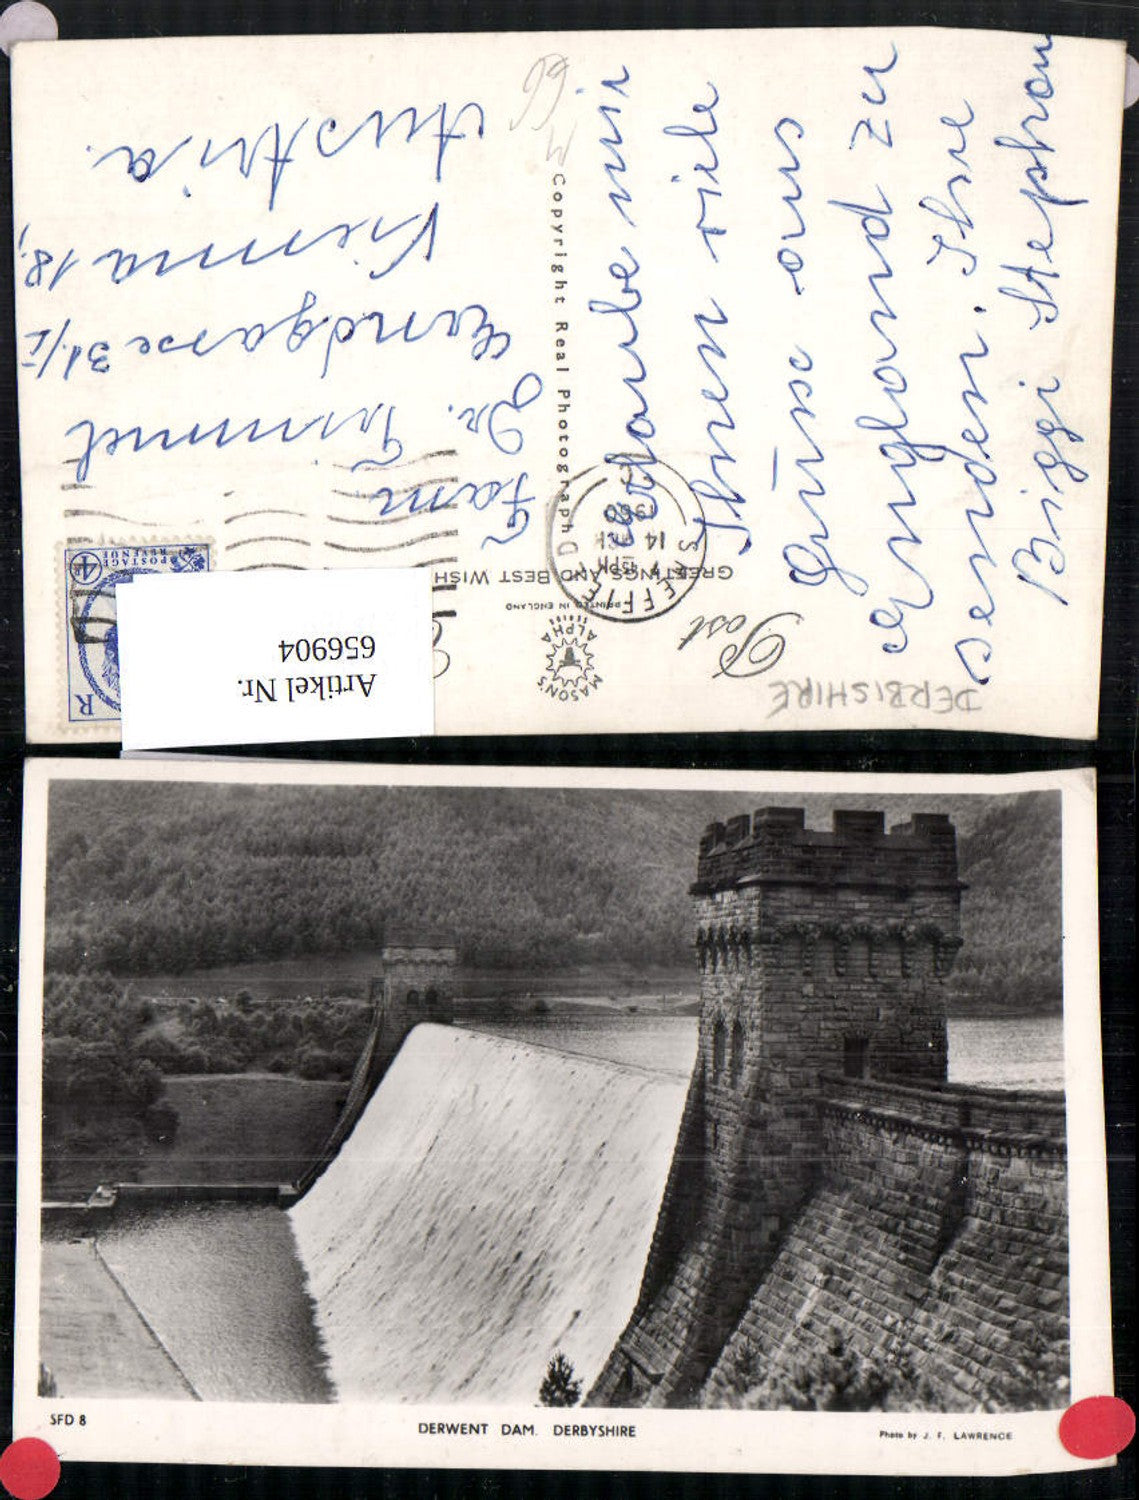 Erlaube mir
Ihnen viele
Grüße aus
England zu
senden. Ihre
Biggi Stephan
Fam
Dr. Trimmel
Landgasse 31/I
Vienna 18,
Austria.
66
Copyright Real Photograph
GREETINGS AND BEST WISH
Post
PRINTED IN ENGLAND
MASON'S
ALPHA
SERIES
SHEFFIELD
14
1960
POSTAGE
REVENUE
4D
R
Artikel Nr.
656904
DERBISHIRE
SFD 8
DERWENT DAM. DERBYSHIRE
Photo by J. F. LAWRENCE